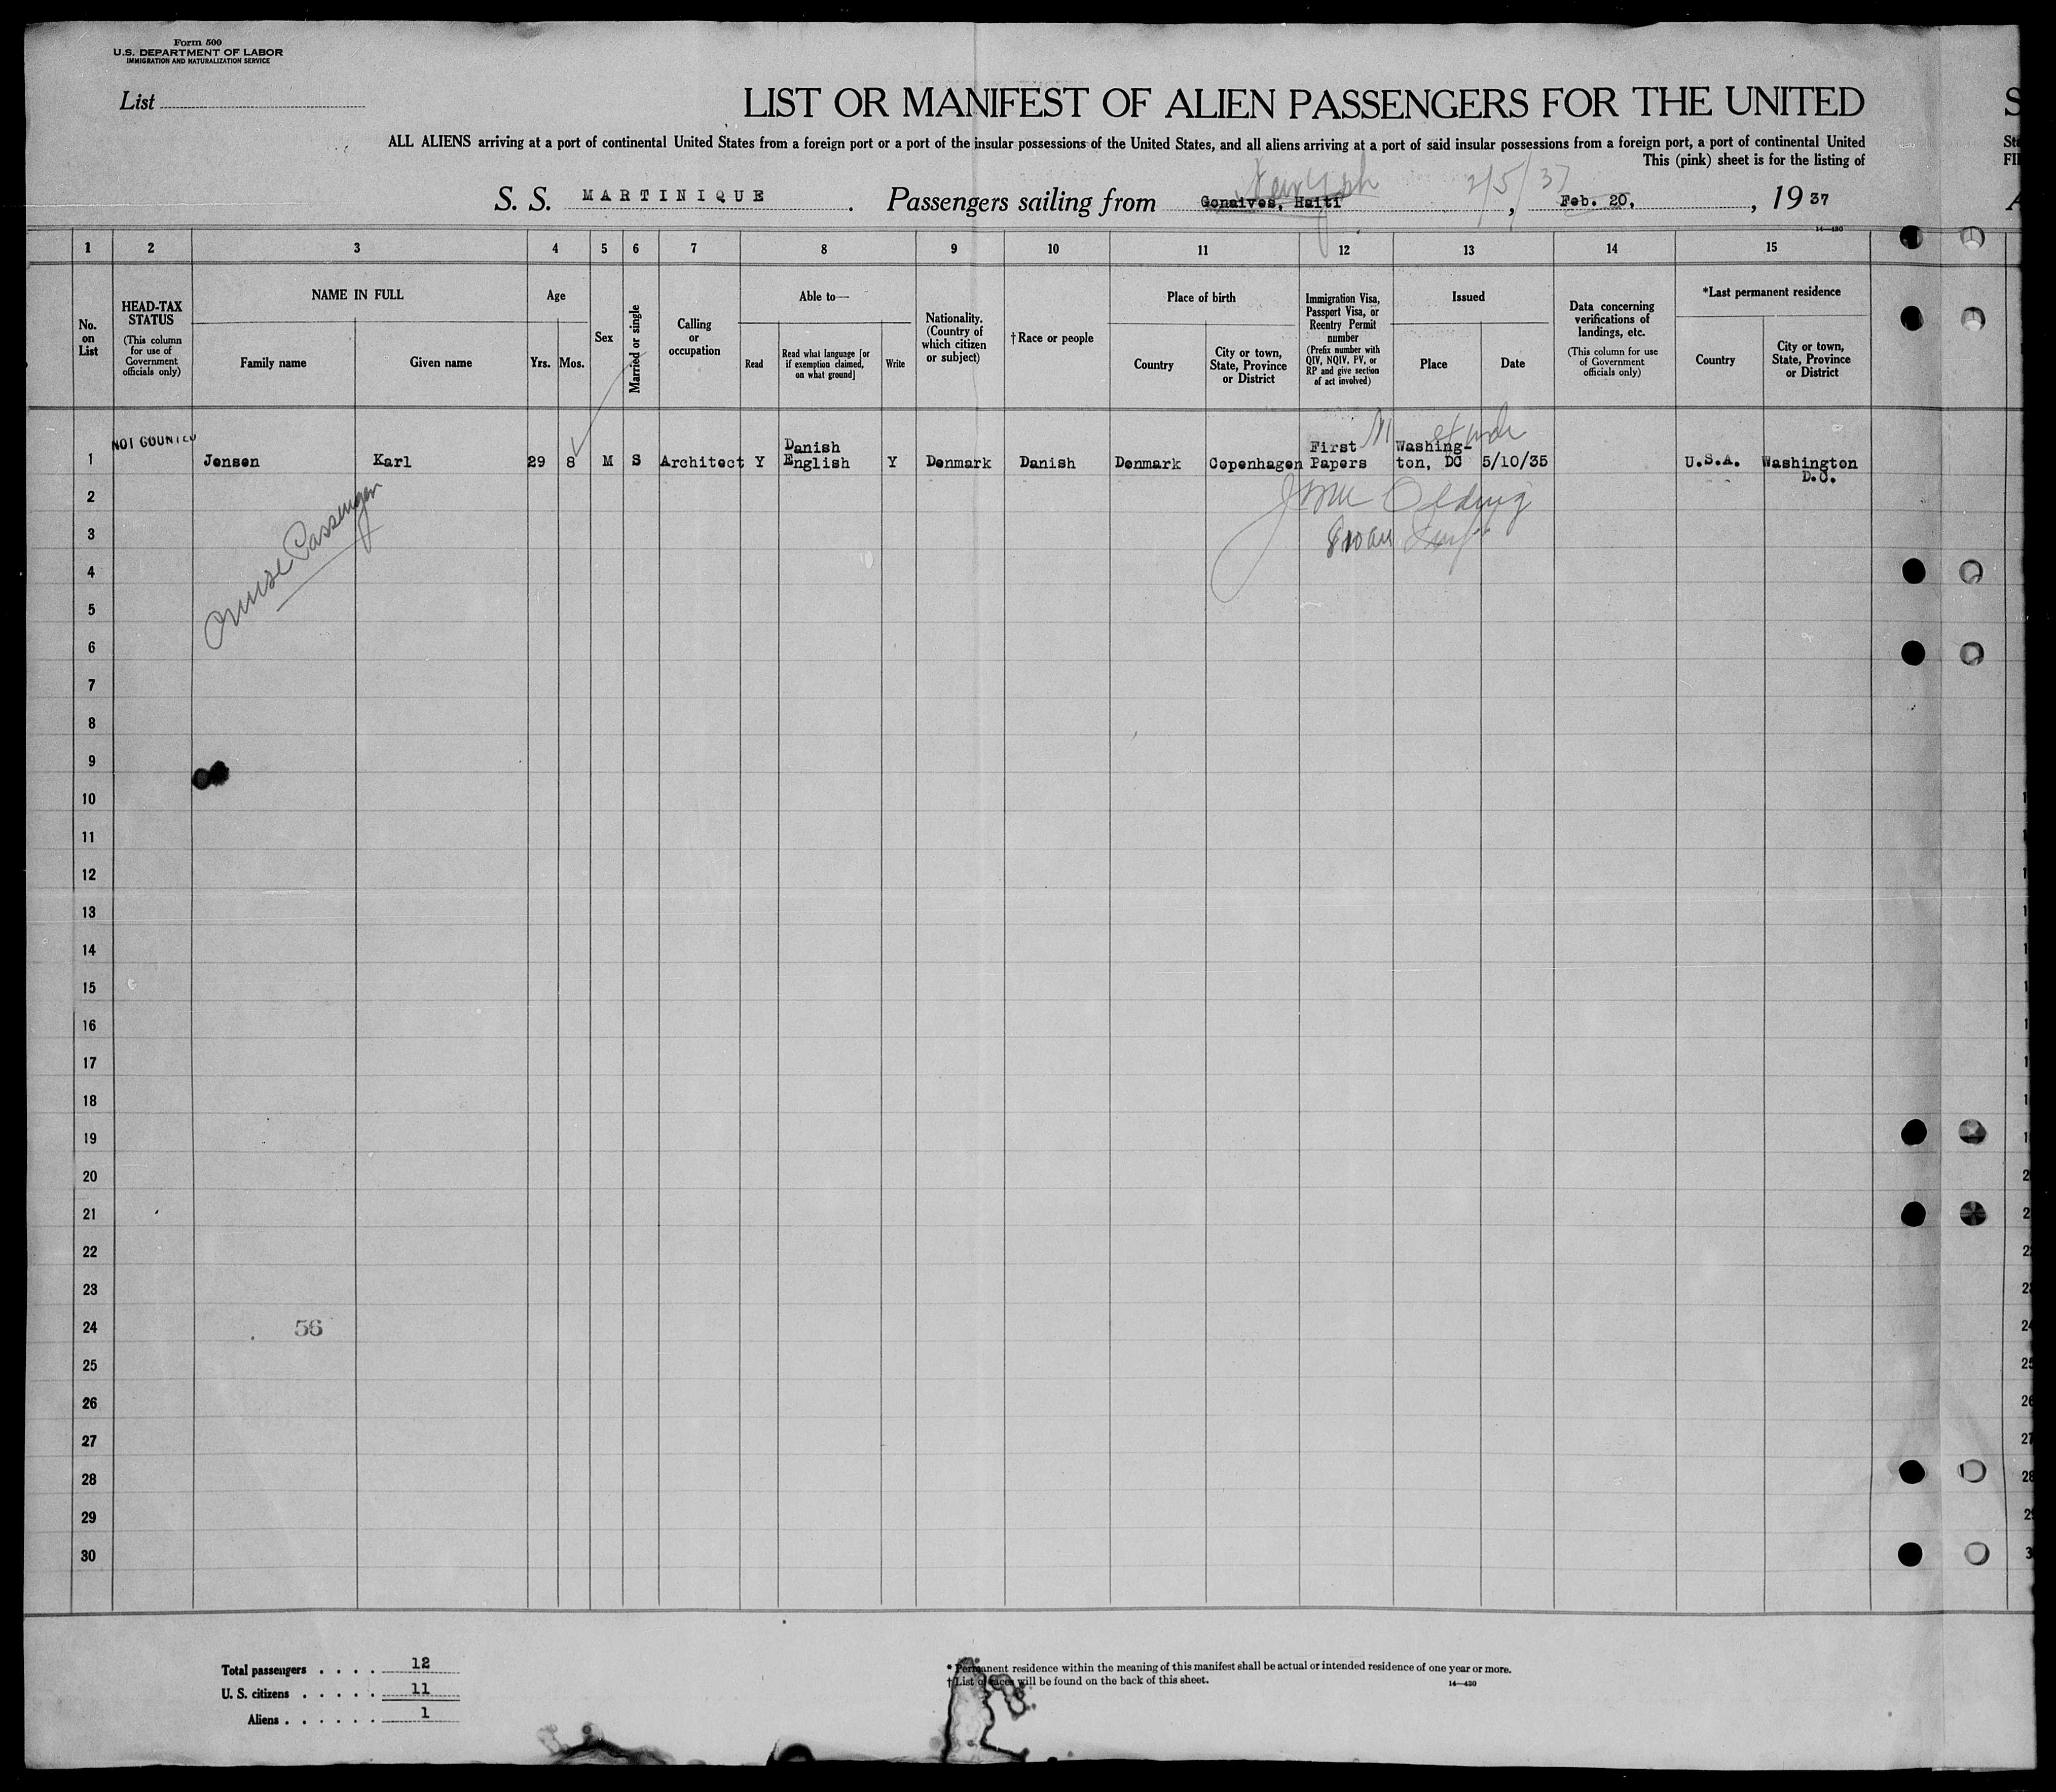 Form 500
U.S. DEPARTMENT OF LABOR
IMMIGRATION AND NATURALIZATION SERVICE
List
LIST OR MANIFEST OF ALIEN PASSENGERS FOR THE UNITED
S
ALL ALIENS arriving at a port of continental United States from a foreign port or a port of the insular possessions of the United States, and all aliens arriving at a port of said insular possessions from a foreign port, a port of continental United
Sta
This (pink) sheet is for the listing of
FI
New York 2/5/37
S. S. MARTINIQUE. Passengers sailing from Gonaives, Haiti, Feb. 20, , 19 37
A
14—430
1 2 3 4 5 6 7 8 9 10 11 12 13 14 15
No. on List
HEAD-TAX STATUS
(This column for use of Government officials only)
NAME IN FULL
Family name
Given name
Age
Yrs.
Mos.
Sex
Married or single
Calling or occupation
Able to—
Read
Read what language [or if exemption claimed, on what ground]
Write
Nationality. (Country of which citizen or subject)
†Race or people
Place of birth
Country
City or town, State, Province or District
Immigration Visa, Passport Visa, or Reentry Permit number
(Prefix number with QIV, NQIV, PV, or RP and give section of act involved)
Issued
Place
Date
Data concerning verifications of landings, etc.
(This column for use of Government officials only)
*Last permanent residence
Country
City or town, State, Province or District
1 NOT COUNTED Jensen Karl 29 8 M S Architect Y Danish English Y Denmark Danish Denmark Copenhagen First Papers Washington, DC 5/10/35 U.S.A. Washington D.C.
2
3
4
5
6
7
8
9
10
11
12
13
14
15
16
17
18
19
20
21
22
23
24
25
26
27
28
29
30
Cruise Passenger
56
Total passengers . . . . 12
U. S. citizens . . . . . 11
Aliens . . . . . . 1
* Permanent residence within the meaning of this manifest shall be actual or intended residence of one year or more.
† List of races will be found on the back of this sheet.
14—430